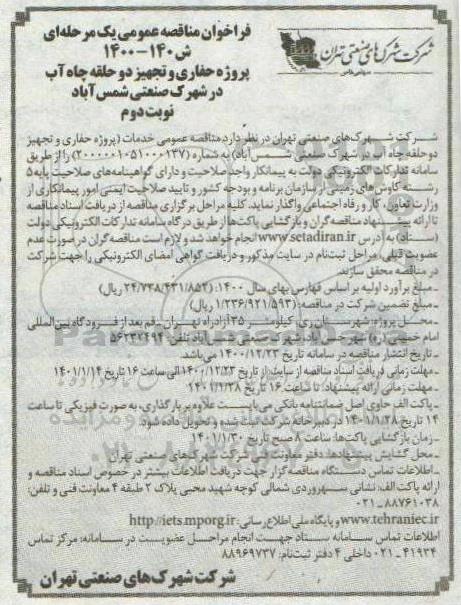 فراخوان مناقصه عمومی یک مرحله‌ای
ش ۱۴۰-۱۴۰۰
پروژه حفاری و تجهیز دو حلقه چاه آب
در شهرک صنعتی شمس آباد
نوبت دوم
شرکت شهرک‌های صنعتی تهران
شرکت شهرک‌های صنعتی تهران در نظر دارد مناقصه عمومی خدمات (پروژه حفاری و تجهیز
دو حلقه چاه آب در شهرک صنعتی شمس آباد) به شماره (۲۰۰۰۰۰۱۰۵۱۰۰۰۱۳۷) را از طریق
سامانه تدارکات الکترونیکی دولت به پیمانکار واجد صلاحیت و دارای گواهینامه‌های صلاحیت پایه ۵
رشته کاوش‌های زمینی از سازمان برنامه و بودجه کشور و تایید صلاحیت ایمنی امور پیمانکاری از
وزارت تعاون، کار و رفاه اجتماعی واگذار نماید. کلیه مراحل برگزاری مناقصه از دریافت اسناد مناقصه
تا ارائه پیشنهاد مناقصه گران و بازگشایی پاکت‌ها از طریق درگاه سامانه تدارکات الکترونیکی دولت
(ستاد) به آدرس www.setadiran.ir انجام خواهد شد و لازم است مناقصه گران در صورت عدم
عضویت قبلی، مراحل ثبت‌نام در سایت مذکور و دریافت گواهی امضای الکترونیکی را جهت شرکت
در مناقصه محقق سازند.
- مبلغ برآورد اولیه بر اساس فهارس بهای سال ۱۴۰۰: (۲۴/۷۳۸/۴۳۱/۸۵۲ ریال)
- مبلغ تضمین شرکت در مناقصه: (۱/۲۳۶/۹۲۱/۵۹۳ ریال)
- محل پروژه: شهرستان ری، کیلومتر ۳۵ آزادراه تهران - قم بعد از فرودگاه بین‌المللی
امام خمینی (ره) شهر حسن آباد، شهرک صنعتی شمس آباد تلفن: ۵۶۲۳۲۴۹۴
- تاریخ انتشار مناقصه در سامانه تاریخ ۱۴۰۰/۱۲/۲۳ می‌باشد.
- مهلت زمانی دریافت اسناد مناقصه از سایت: از تاریخ ۱۴۰۰/۱۲/۲۳ الی ساعت ۱۶ تاریخ ۱۴۰۱/۱/۱۴
- مهلت زمانی ارائه پیشنهاد: تا ساعت ۱۶ تاریخ ۱۴۰۱/۱/۲۸
- پاکت الف حاوی اصل ضمانتنامه بانکی می‌بایست علاوه بر بارگذاری، به صورت فیزیکی تا ساعت
۱۴ تاریخ ۱۴۰۱/۱/۲۸ در دبیرخانه شرکت ثبت شده و تحویل داده شود.
- زمان بازگشایی پاکت‌ها: ساعت ۸ صبح تاریخ ۱۴۰۱/۱/۳۰
- محل گشایش پیشنهادها: دفتر معاونت فنی شرکت شهرک‌های صنعتی تهران
- اطلاعات تماس دستگاه مناقصه گزار جهت دریافت اطلاعات بیشتر در خصوص اسناد مناقصه و
ارائه پاکت الف: نشانی سهروردی شمالی کوچه شهید محبی پلاک ۲ طبقه ۴ معاونت فنی و تلفن:
۸۸۷۶۱۰۳۸-۰۲۱
www.tehraniec.ir و پایگاه ملی اطلاع رسانی: http://iets.mporg.ir
اطلاعات تماس سامانه ستاد جهت انجام مراحل عضویت در سامانه: مرکز تماس
۴۱۹۳۴-۰۲۱ داخلی ۴ دفتر ثبت‌نام: ۸۸۹۶۹۷۳۷
شرکت شهرک‌های صنعتی تهران